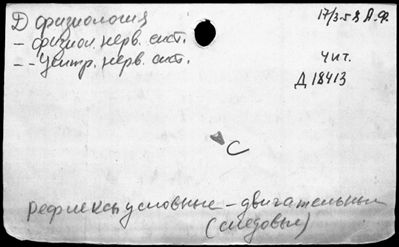 Д физиология
– физиол. нерв. сист.
– – центр. нерв. сист.
17/3-58 А.Ф.
Чит.
Д 18413
С
Рефлексы условные – двигательные
(следовые)